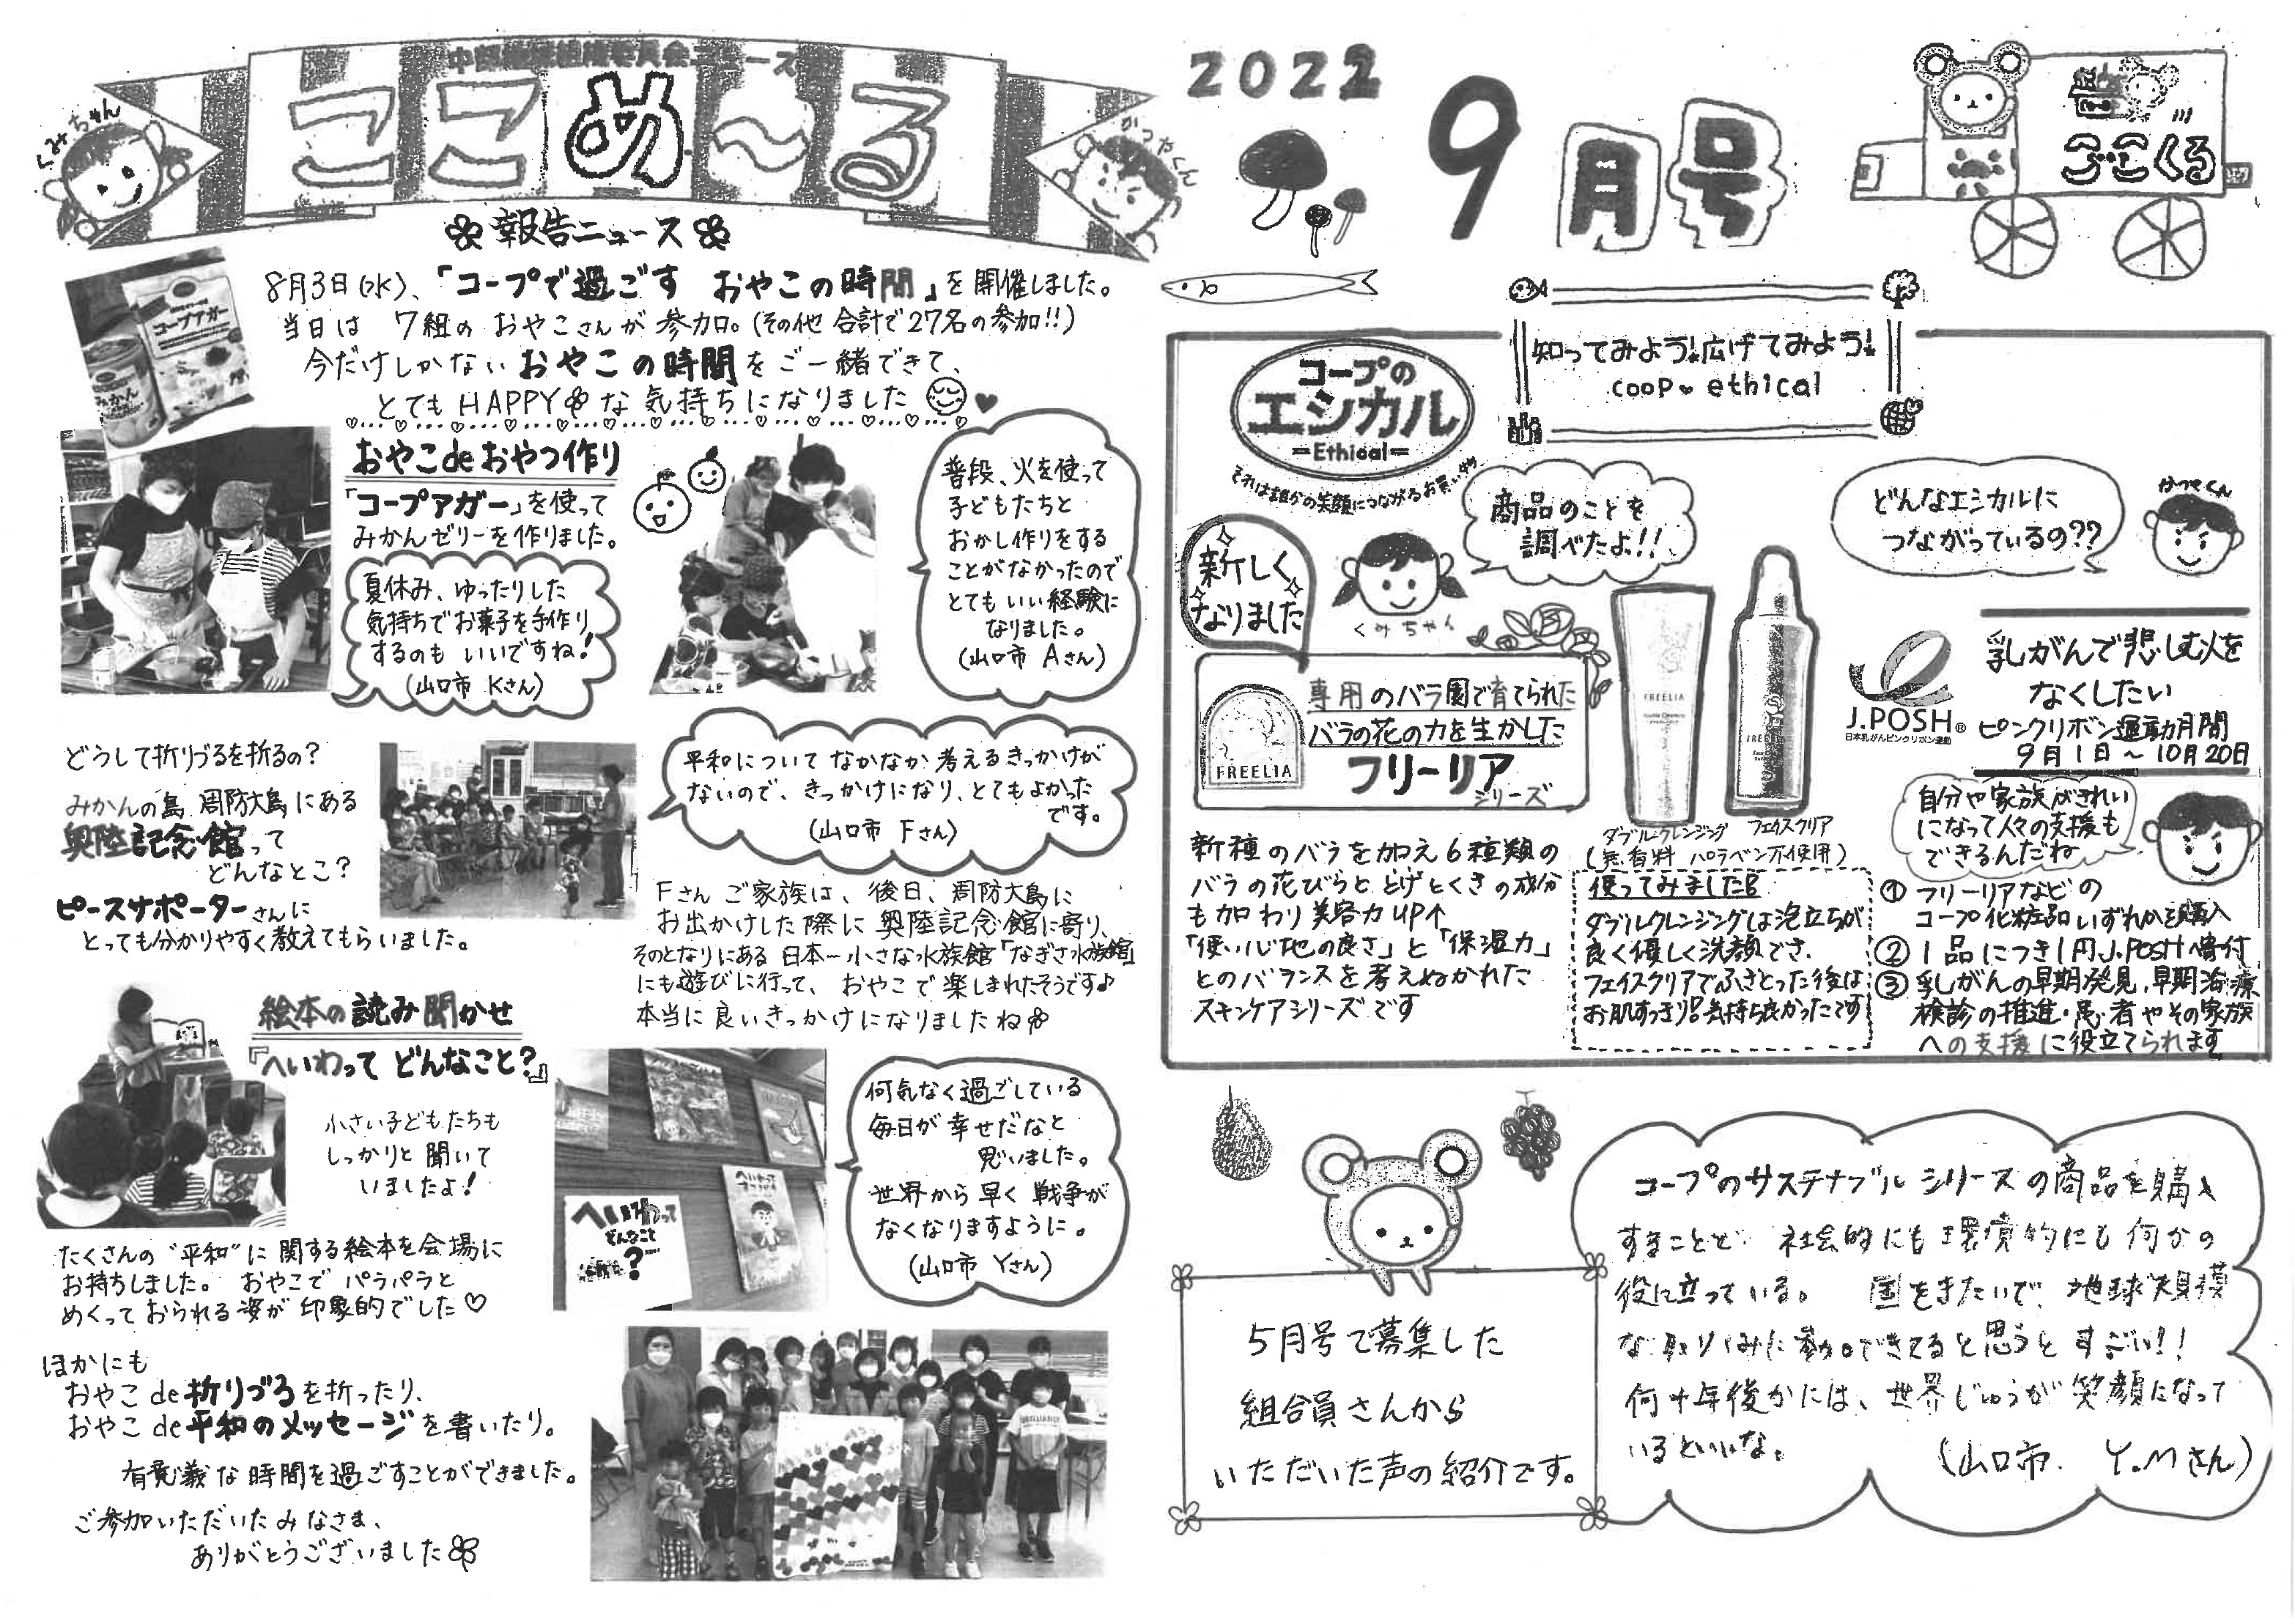 ここめ〜る
くみちゃん
かつやくん
2022
9月号
ここくる
報告ニュース
8月3日(水)、「コープで過ごす おやこの時間」を開催しました。
当日は 7組の おやこさんが 参加。(その他 合計で27名の参加!!)
今だけしかない おやこの時間をご一緒できて、
とても HAPPY な 気持ちになりました
コープアガー
みかん
おやこdeおやつ作り
「コープアガー」を使って
みかんゼリーを作りました。
夏休み、ゆったりした
気持ちでお菓子を手作り
するのも いいですね!
(山口市 Kさん)
普段、火を使って
子どもたちと
おかし作りをする
ことがなかったので
とてもいい経験に
なりました。
(山口市 Aさん)
どうして折りづるを折るの?
みかんの島 周防大島にある
奥陸記念館って
どんなとこ?
ピースサポーターさんに
とっても分かりやすく教えてもらいました。
平和について なかなか 考えるきっかけが
ないので、きっかけになり、とてもよかった
です。
(山口市 Fさん)
Fさん ご家族は、後日、周防大島に
お出かけした際に 奥陸記念館に寄り、
そのとなりにある 日本一小さな水族館「なぎさ水族館」
にも遊びに行って、おやこで楽しまれたそうです♪
本当に良いきっかけになりましたね
絵本の読み聞かせ
『へいわって どんなこと?』
小さい子どもたちも
しっかりと 聞いて
いましたよ!
へいわって
どんなこと
?
何気なく過ごしている
毎日が 幸せだなと
思いました。
世界から 早く 戦争が
なくなりますように。
(山口市 Yさん)
たくさんの “平和”に 関する絵本を会場に
お持ちしました。おやこで パラパラと
めくっておられる姿が 印象的でした♡
ほかにも
おやこde折りづるを折ったり、
おやこde平和のメッセージを書いたり。
有意義な時間を過ごすことができました。
ご参加いただいたみなさま、
ありがとうございました
コープの
エシカル
Ethical
それは誰かの笑顔につながるお買い物
知ってみよう!広げてみよう!
coop♥ethical
商品のことを
調べたよ!!
くみちゃん
どんなエシカルに
つながっているの??
かつやくん
新しく
なりました
FREELIA
専用のバラ園で育てられた
バラの花の力を生かした
フリーリア
シリーズ
FREELIA
ダブルクレンジング フェイスクリア
(無香料 パラベン不使用)
新種のバラを加え6種類の
バラの花びらと とげとくきの成分
も加わり 美容力UP↑
「使い心地の良さ」と「保湿力」
とのバランスを考えぬかれた
スキンケアシリーズです
使ってみました
ダブルクレンジングは泡立ちが
良く優しく洗顔でき、
フェイスクリアでふきとった後は
お肌すっきり!気持ち良かったです
J.POSH®
日本乳がんピンクリボン運動
乳がんで悲しむ人を
なくしたい
ピンクリボン運動月間
9月1日〜10月20日
自分や家族がきれい
になって人々の支援も
できるんだね
① フリーリアなどの
コープ化粧品いずれかを購入
② 1品につき1円J.POSHへ寄付
③ 乳がんの早期発見、早期治療
検診の推進・患者やその家族
への支援に役立てられます
5月号で募集した
組合員さんから
いただいた声の紹介です。
コープのサステナブル シリーズの商品を購入
することで 社会的にも環境的にも何かの
役に立っている。 国をまたいで、地球規模
な取りくみに参加できてると思うと すごい!!
何十年後かには、世界じゅうが笑顔になって
いるといいな。
(山口市. Y.Mさん)